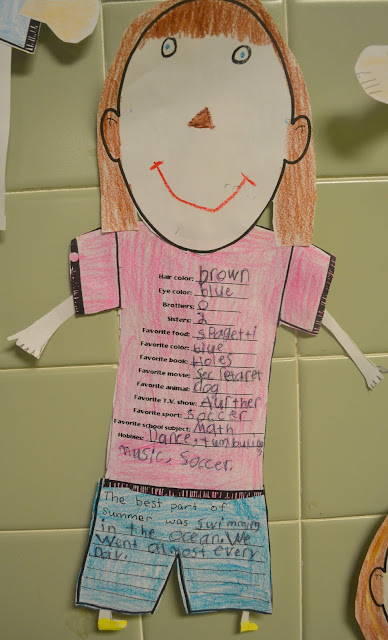 Hair color: brown
Eye color: blue
Brothers: 0
Sisters: 2
Favorite food: spagetti
Favorite color: blue
Favorite book: Holes
Favorite movie: Secretaret
Favorite animal: dog
Favorite T.V. show: Aurther
Favorite sport: Soccer
Favorite school subject: Math
Hobbies: Dance, tumbuling
music, Soccer.
The best part of
summer was swimming
in the ocean. We
went almost every
Day.